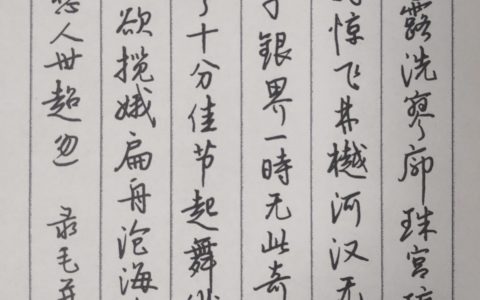 露洗寥廓珠宫琼
惊飞林樾河汉无
银界一時无此奇
了十分佳节起舞
欲揽娥扁舟沧海
愁人世超忽 录毛